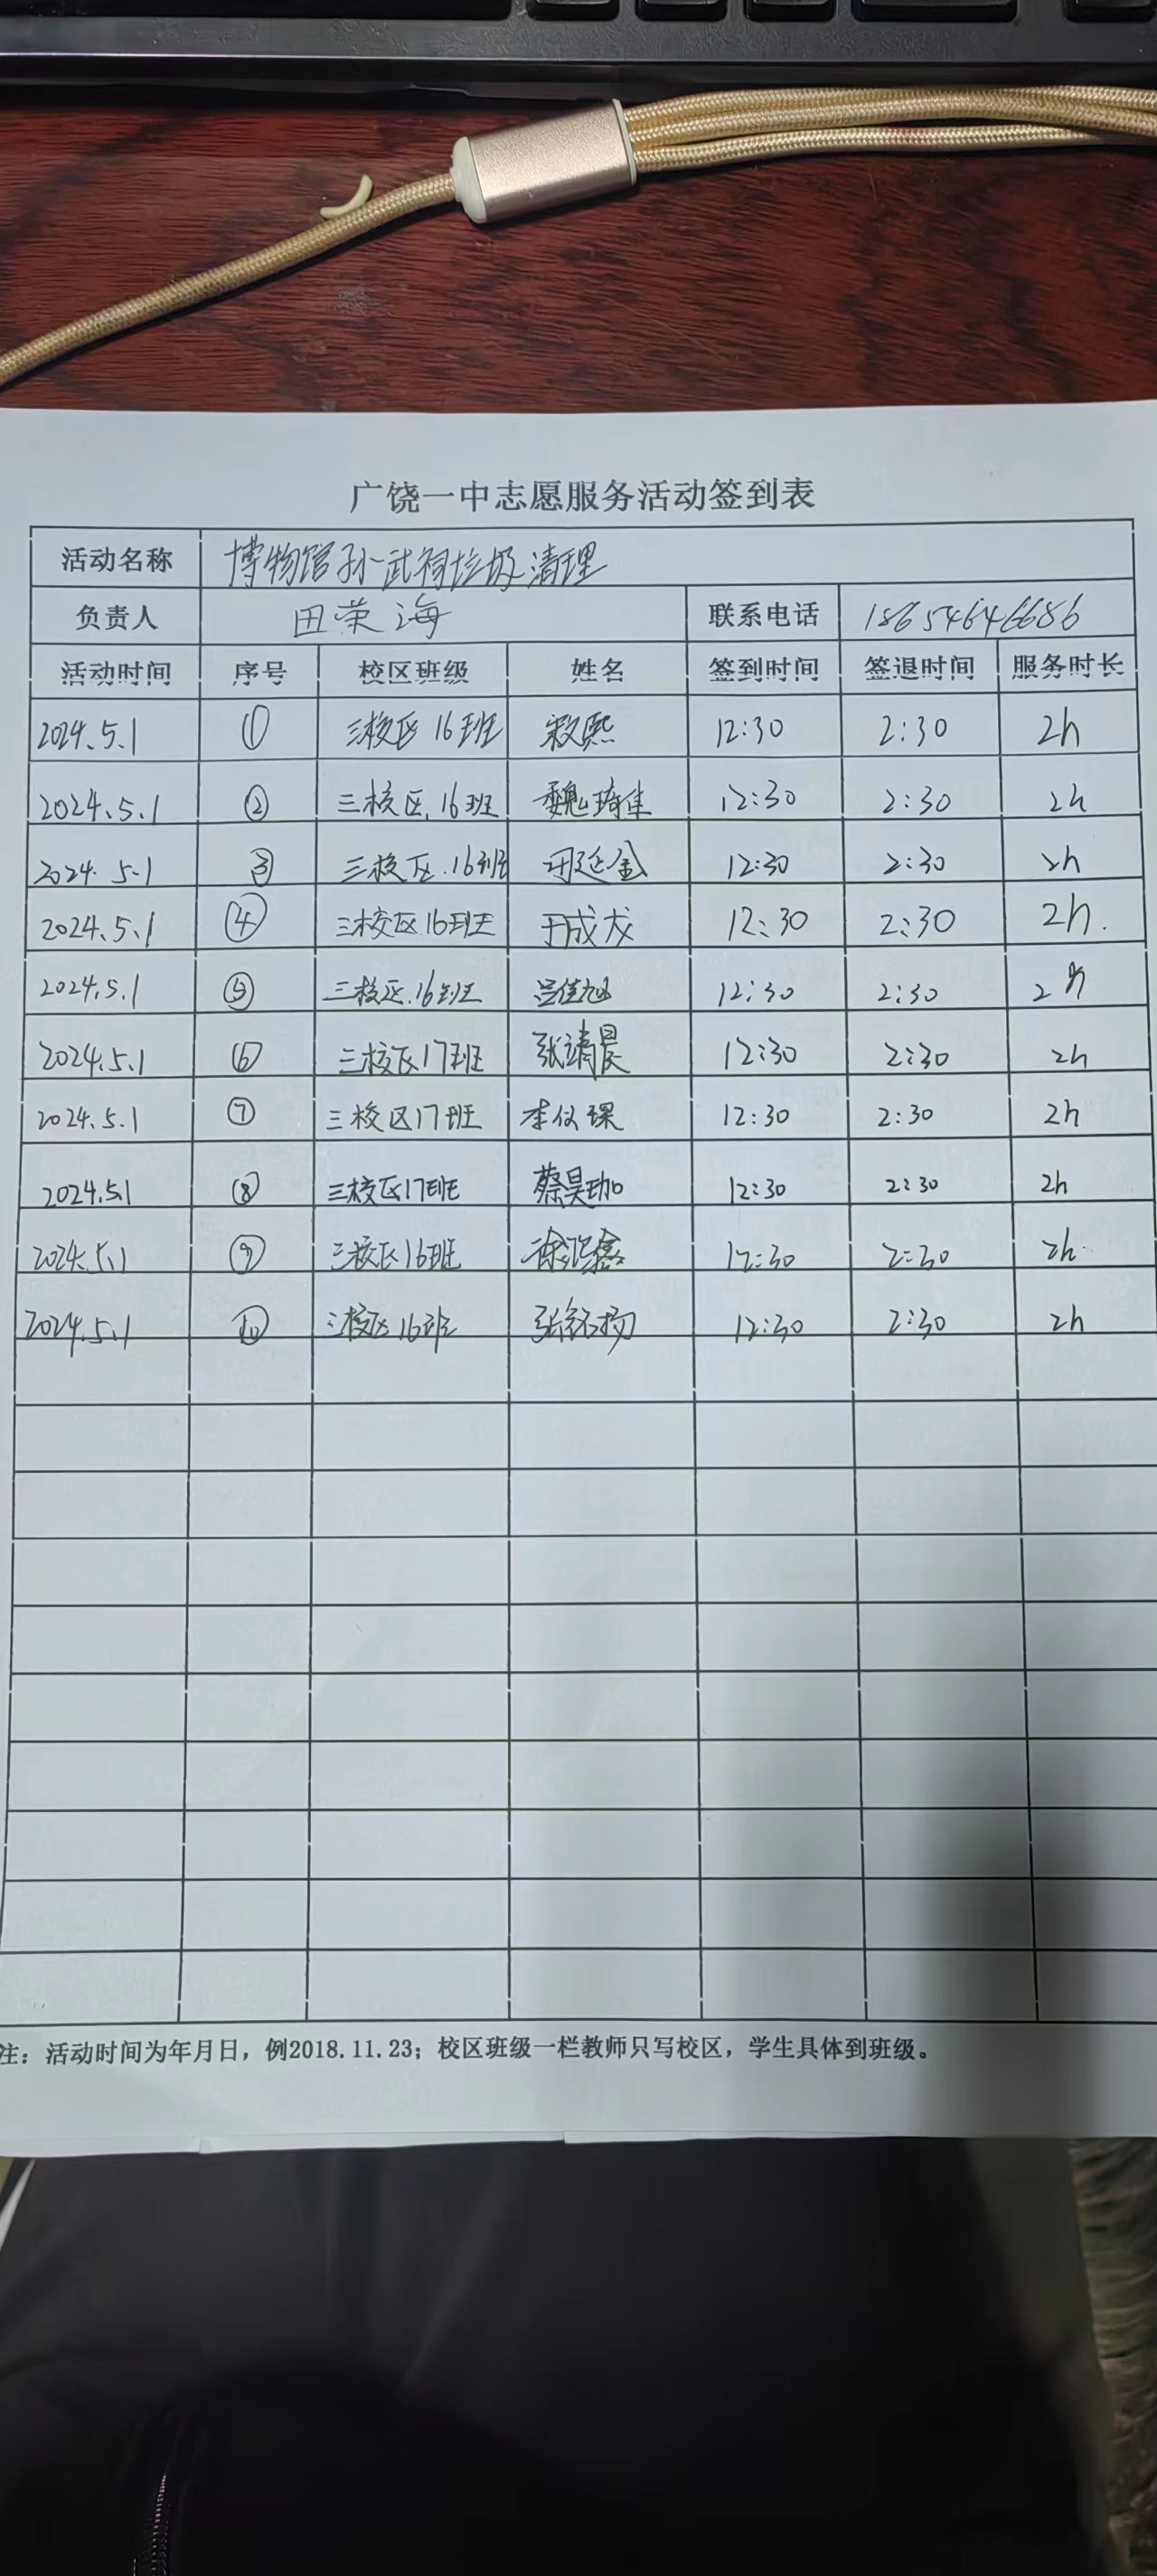 广饶一中志愿服务活动签到表
活动名称 博物馆孙武祠垃圾清理
负责人 田荣海 联系电话 18654646686
活动时间 序号 校区班级 姓名 签到时间 签退时间 服务时长
2024.5.1 ① 三校区 16班 12:30 2:30 2h
2024.5.1 ② 三校区.16班 魏琦佳 12:30 2:30 2h
2024.5.1 ③ 三校区.16班 12:30 2:30 2h
2024.5.1 ④ 三校区16班 于成龙 12:30 2:30 2h.
2024.5.1 ⑤ 三校区.16班 吕佳旭 12:30 2:30 2h
2024.5.1 ⑥ 三校区17班 张靖晨 12:30 2:30 2h
2024.5.1 ⑦ 三校区17班 李仪琛 12:30 2:30 2h
2024.5.1 ⑧ 三校区17班 蔡昊珈 12:30 2:30 2h
2024.5.1 ⑨ 三校区16班 12:30 2:30 2h
2024.5.1 ⑩ 三校区16班 张铭扬 12:30 2:30 2h
注：活动时间为年月日，例2018.11.23；校区班级一栏教师只写校区，学生具体到班级。